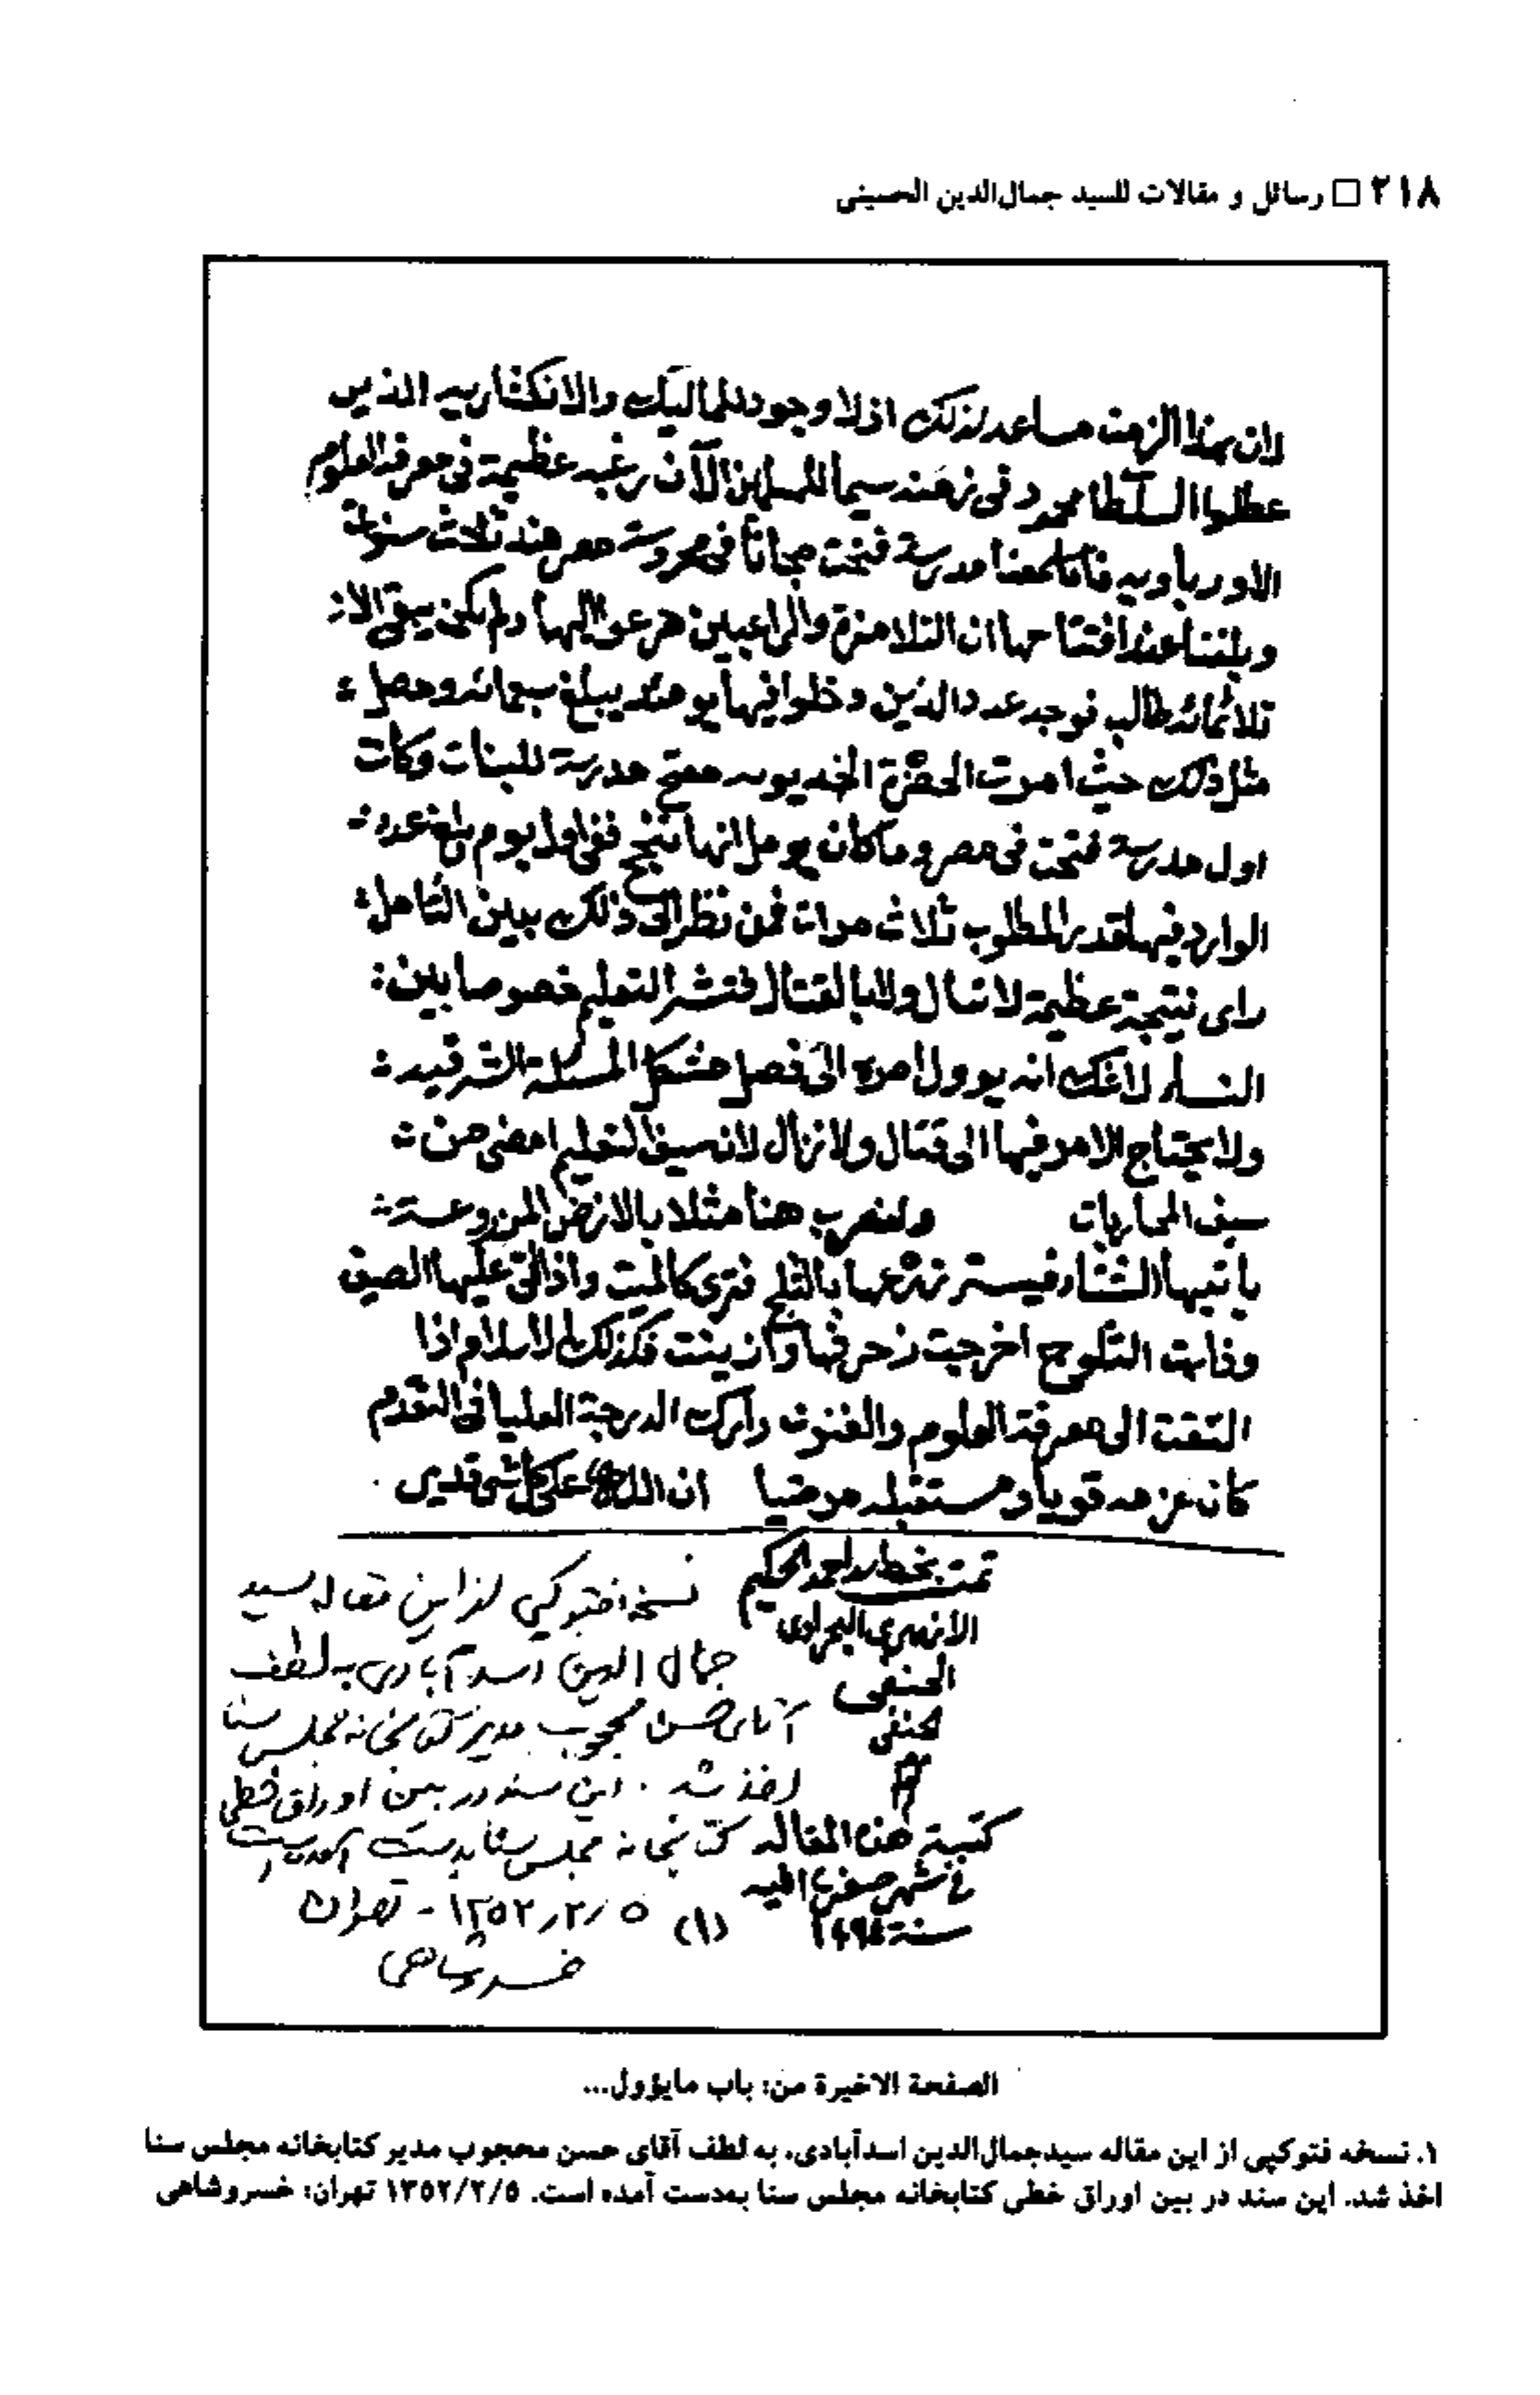 ٢١٨ □ رسائل و مقالات للسيد جمال‌الدين الحسينى
لان هذا الزمن مساعد لذلك اذ لا وجود للماليك والانكشاريه الذين
عطلوا السلطان محمود فى زمنه سيما للمسلمين الآن رغبه عظيمة فى معرفة العلوم
الاورباويه فاما سمعنا مدرسة فتحت مجانا فى محروسة مصر منذ ثلاث سنوات
وبلغنا عند افتتاحها ان التلامذة والراغبين هرعوا اليها ولم يكن يبتغى الا
ثلاثمائه طالب فوجد عدد الذين دخلوا فيها يومئذ يبلغ سبعمائه وحصل
مثل ذلك حيث امرت الحضرة الخديويه بفتح مدرسة للبنات وكانت
اول مدرسة فتحت فى مصر وما كان يومل انها تنجح ففى اول يوم بلغ عدد
الوارد فيها قدر المطلوب ثلاث مرات فمن نظر الى ذلك بعين التامل
راى نتيجة عظيمة لا تنال ولا بالقتال فنشر التعليم خصوصا بين
النساء لا شك انه يوول امره الى فصل مشكل المسئلة الشرقيه
ولا يحتاج الامر فيها الى قتال ولا نزال لان سيف التعليم امضى من
سيف المحاربات ولنضرب هنا مثلا بالارض المزروعة
ياتيها الشتاء فيستر زرعها بالثلج فترى كالميت واذا اتى عليها الصيف
وذابت الثلوج اخرجت زخرفها وازينت فكذلك الاسلام اذا
التفت الى معرفة العلوم والفنون وادرك الدرجة العليا فى التقدم
كان عزمه قويا ومستقبله مرضيا ان الله على كل شى قدير .
تمت بخط احمد الحكيم
الازهرى البحراوى
الحنفى
الحنفى
كتبت هذه المقاله
فى شهر صفر
سنة ١٢٩٤
نسخه فتوكپى از اين مقاله سيد
جمال الدين اسدآبادى به لطف
آقاى حسن محجوب مدير كتابخانه مجلس سنا
اخذ شد . اين سند در بين اوراق خطى
كتابخانه مجلس سنا بدست آمده است
١٣٥٢/٢/٥ - تهران (١)
خسروشاهى
الصفحة الاخيرة من: باب مايؤول...
١. نسخه فتوكپى از اين مقاله سيدجمال‌الدين اسدآبادى، به لطف آقاى حسن محجوب مدير كتابخانه مجلس سنا
اخذ شد. اين سند در بين اوراق خطى كتابخانه مجلس سنا به‌دست آمده است. ١٣٥٢/٢/٥ تهران: خسروشاهى